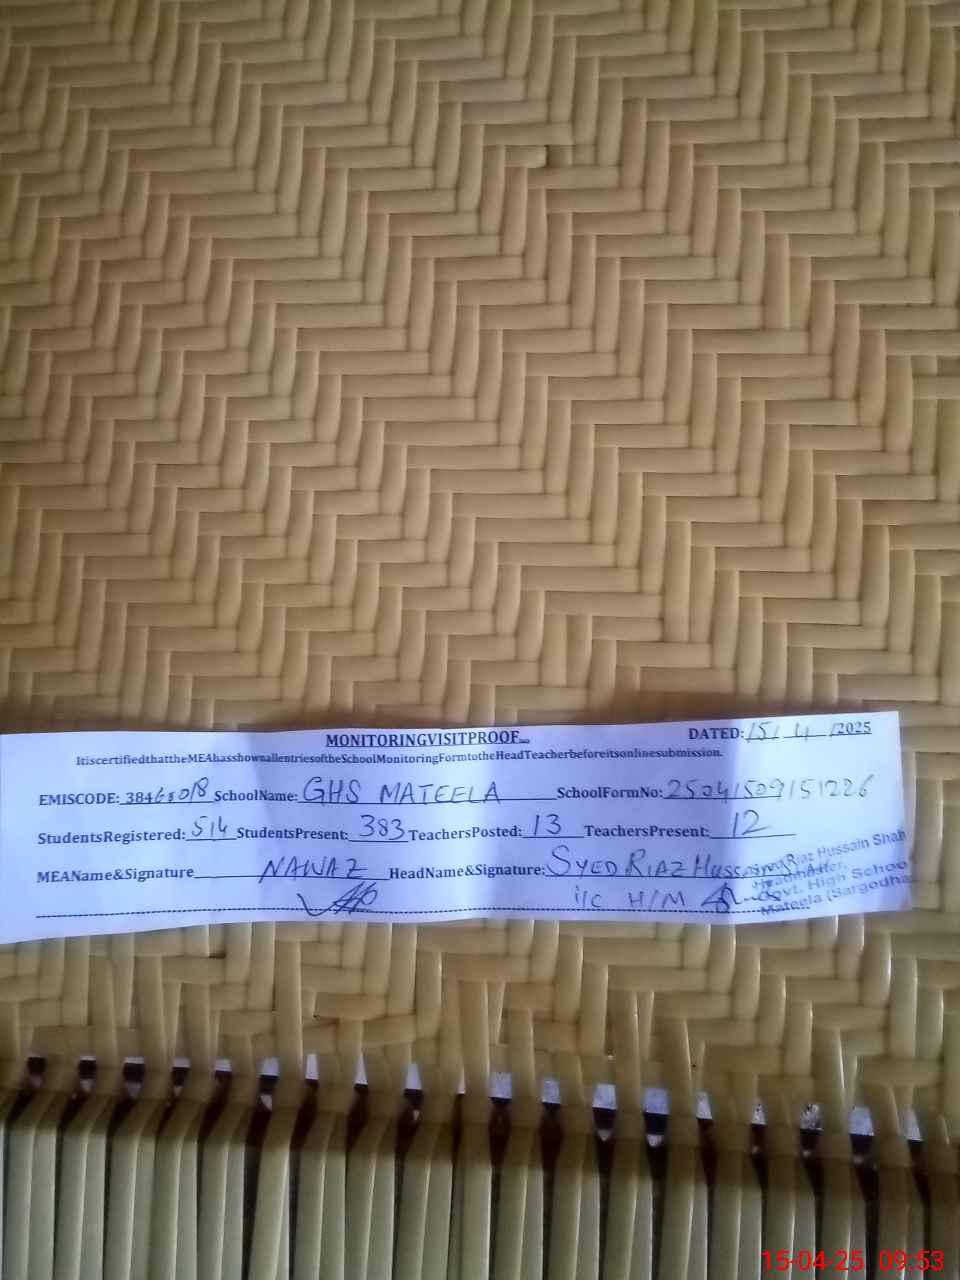 MONITORINGVISITPROOF
DATED: 15/ 4 /2025
ItiscertifiedthattheMEAhasshownallentriesoftheSchoolMonitoringFormtotheHeadTeacherbeforeitsonlinesubmission.
EMISCODE: SchoolName: GHS MATEELA SchoolFormNo: 25041509151226
StudentsRegistered: 514 StudentsPresent: 383 TeachersPosted: 13 TeachersPresent: 12
MEAName&Signature NAWAZ HeadName&Signature: SYED RIAZ Hussain
i/c H/M
Riaz Hussain Shah
Headmaster,
Govt. High School
Mateela (Sargodha
15-04-25 09:53